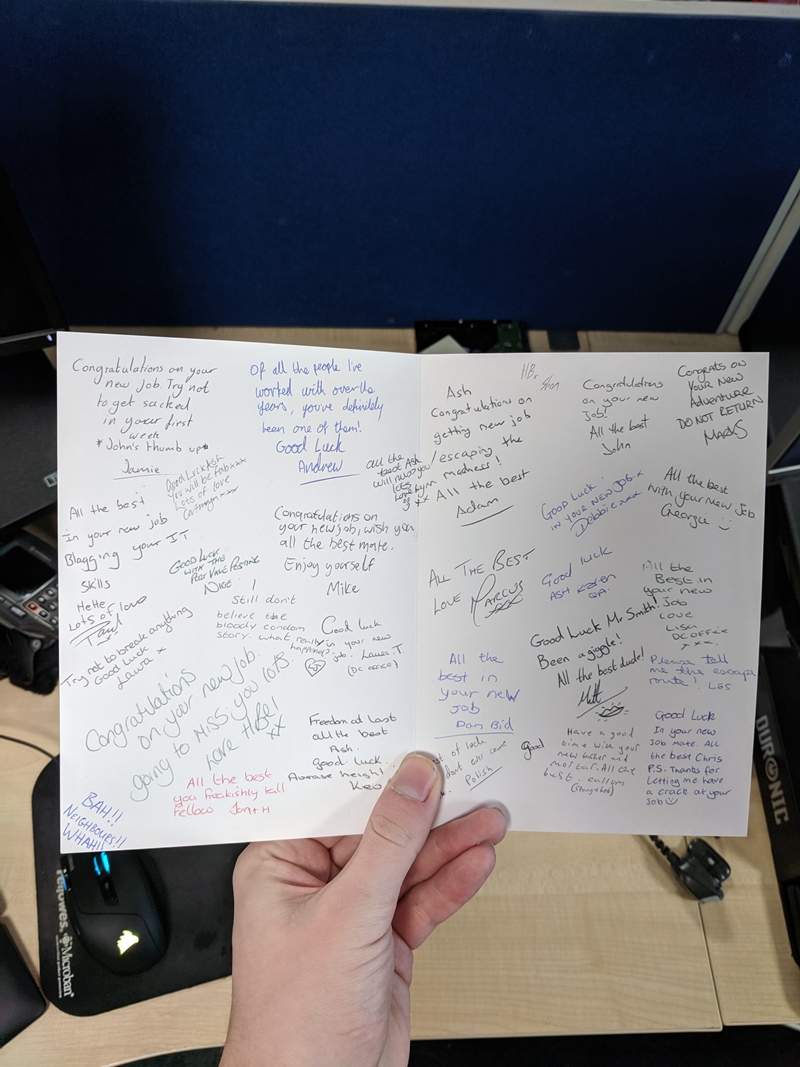 Congratulations on your
new Job. Try not
to get sacked
in your first
week
*John's thumb up*
Jamie
Of all the people I've
worked with over the
years, you've definitely
been one of them!
Good Luck
Andrew
Good Luck Ash
you will be fab xxx
Lots of love
all the
best Ash
will miss you
Lots
Love
xx
All the best
In your new job
Blagging your IT
Skills
Hehe
Lots of love
Paul
Good Luck
with the
Nige!
Congratulations on
your new job, wish you
all the best mate.
Enjoy yourself
Mike
Try not to break anything
Good Luck
Laura x
I
Still don't
believe the
bloody condom
story. what really
happened?
Good luck
in your new
job! Laura T.
(DC office)
Congratulations
on your new job.
going to miss you lots.
have HBR!
xx
Freedom at last
all the best
Ash.
good luck.
Average height
Kev
All the best
you freakishly tall
fellow
BAH!!
NEIGHBOURS!!
WHAH!!
Ash
Congratulations on
getting new job
/escaping the
madness!
All the best
Adam
HBr
Congratulations
on your new
Job!
All the best
John
Congrats on
Your New
Adventure
DO NOT RETURN
MARKS
Good Luck!
IN YOUR NEW JOB x
Debbie xxx
All the best
with your new Job
Georgia
ALL THE BEST
LOVE MARCUS
xxx
Good luck
ASH Karen
QA.
All the
Best in
your new
Job
Love
Lisa
DC OFFICE
xxx.
Good Luck Mr. Smith!
Been a giggle!
All the best dude!
Matt
All the
best in
your new
job
Dan Bid
Please tell
me the escape
route! LGS
good
of luck
Polish
Have a good
time with your
new
All the
best. Callum
Good Luck
In your new
Job mate All
the best Chris
P.S. Thanks for
Letting me have
a crack at your
Job
DURONIC
Fellowes
Microban